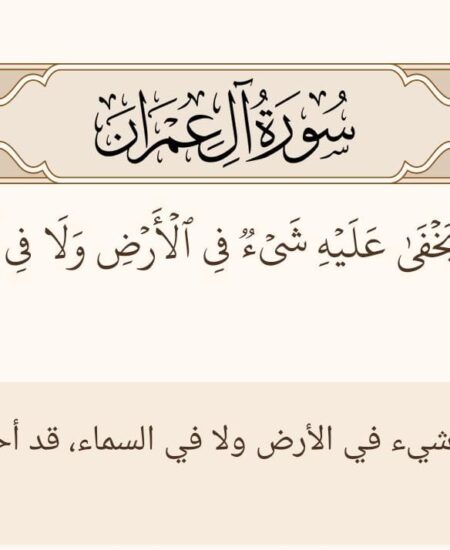 سُورَةُ آلِ عِمْرَانَ
يَخْفَىٰ عَلَيْهِ شَىْءٌ فِى ٱلْأَرْضِ وَلَا فِى
شيء في الأرض ولا في السماء، قد أح